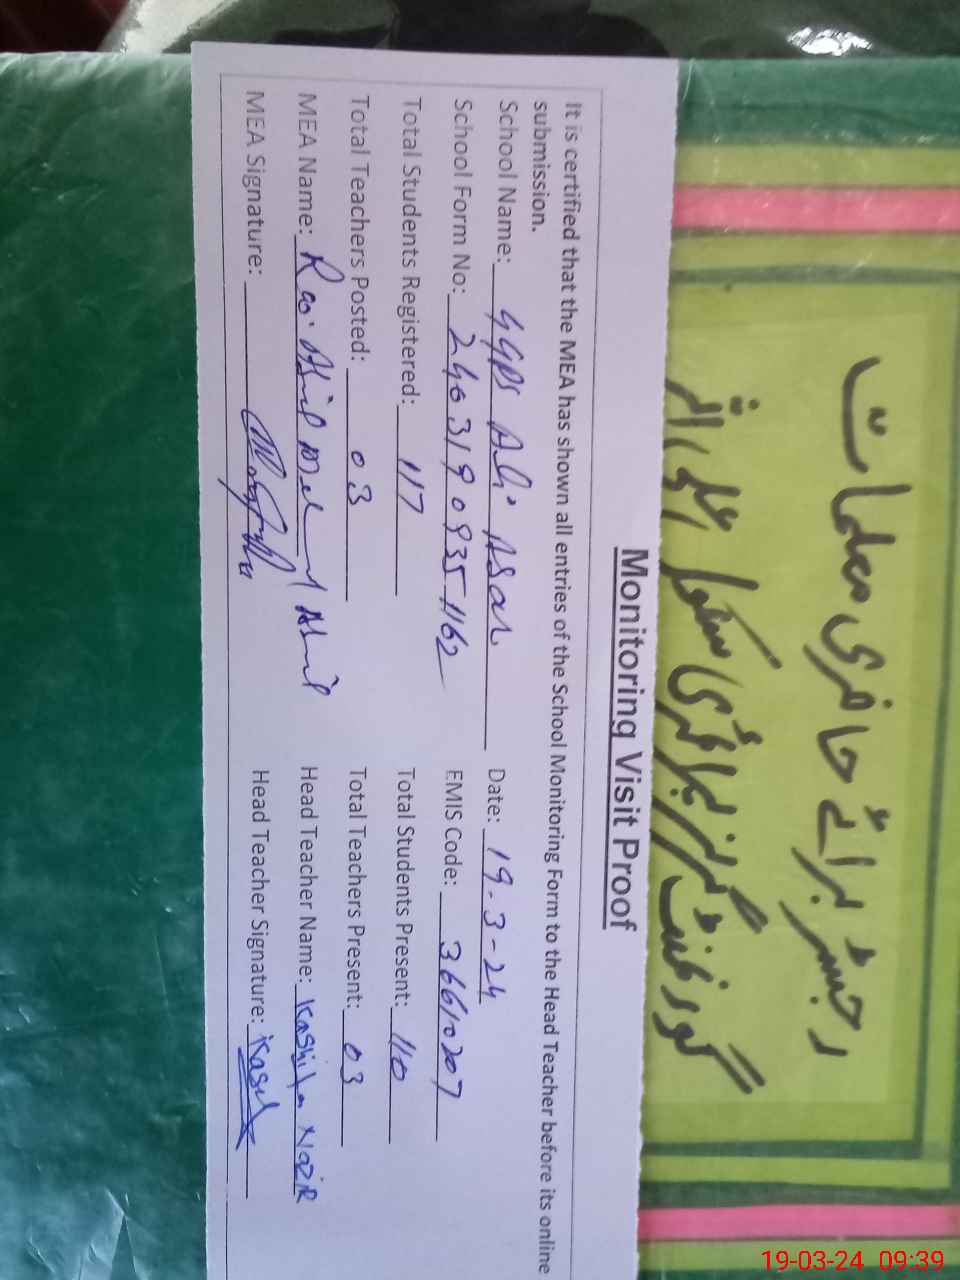 رجسٹر برائے حاضری معلمات
گورنمنٹ گرلز پرائمری سکول
Monitoring Visit Proof
It is certified that the MEA has shown all entries of the School Monitoring Form to the Head Teacher before its online
submission.
School Name: GGPS Ali Asar Date: 19-3-24
School Form No: 2403190935 1162 EMIS Code: 36610207
Total Students Registered: 117 Total Students Present: 110
Total Teachers Posted: 03 Total Teachers Present: 03
MEA Name: Head Teacher Name: Kashifa Nazir
MEA Signature: Head Teacher Signature: Kashf
19-03-24 09:39